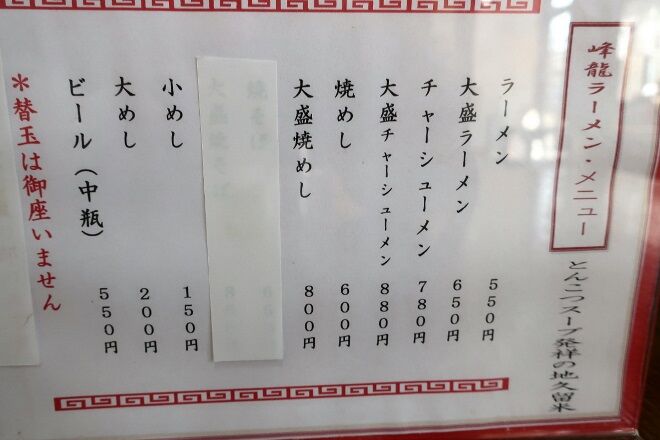 峰龍ラーメン・メニュー
とんこつスープ発祥の地久留米
ラーメン 550円
大盛ラーメン 650円
チャーシューメン 780円
大盛チャーシューメン 880円
焼めし 600円
大盛焼めし 800円
小めし 150円
大めし 200円
ビール(中瓶) 550円
*替玉は御座いません